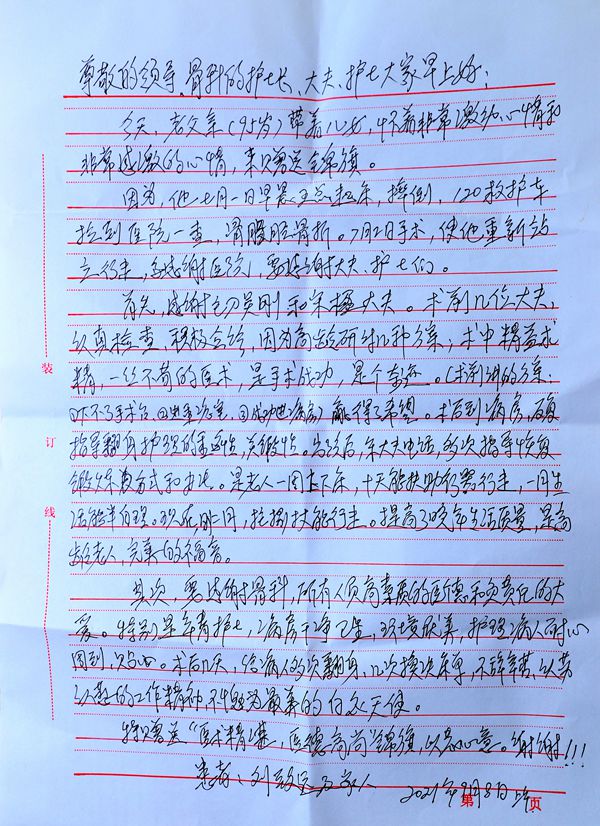 尊敬的领导、骨科的护士长、大夫、护士大家早上好：
今天，老父亲（95岁）带着儿女，怀着非常激动心情和
非常感激的心情，来赠送锦旗。
因为，他七月一日早晨起床，摔倒，120救护车
拉到医院一查，骨股胫骨折。7月2日手术，使他重新站
立行走，感谢医院，要感谢大夫、护士们。
首先，感谢刚和宋极大夫。术前几位大夫，
认真检查，积极会诊，因为高龄研讨几种方案，术中精益求
精，一丝不苟的医术，是手术成功，是个奇迹。（术前讲的方案：
下不了手术台，回重症室，回病房）赢得了希望。术后到病房，反复
指导翻身护理的重要性，关键性。出院后，宋大夫电话，多次指导恢复
锻炼方式和办法。是老人一周上下床，十天能扶助行器行走，一月生
活能半自理。现在，两月，拄拐杖能行走。提高了晚年生活质量，是高
龄老人，完美的福音。
其次，要感谢骨科，所有人员高素质的医德和负责任的大
爱。特别是年青护士，病房干净卫生，环境优美，护理病人耐心
周到，术后几天，给病人多次翻身，几次换次床单，不辞辛苦，认真
的工作精神，不愧为最美的白衣天使。
特赠送“医术精湛，医德高尚”锦旗，以表心意。谢谢！！！
患者：刘及家人 2021年9月8日
装
订
线
第 页